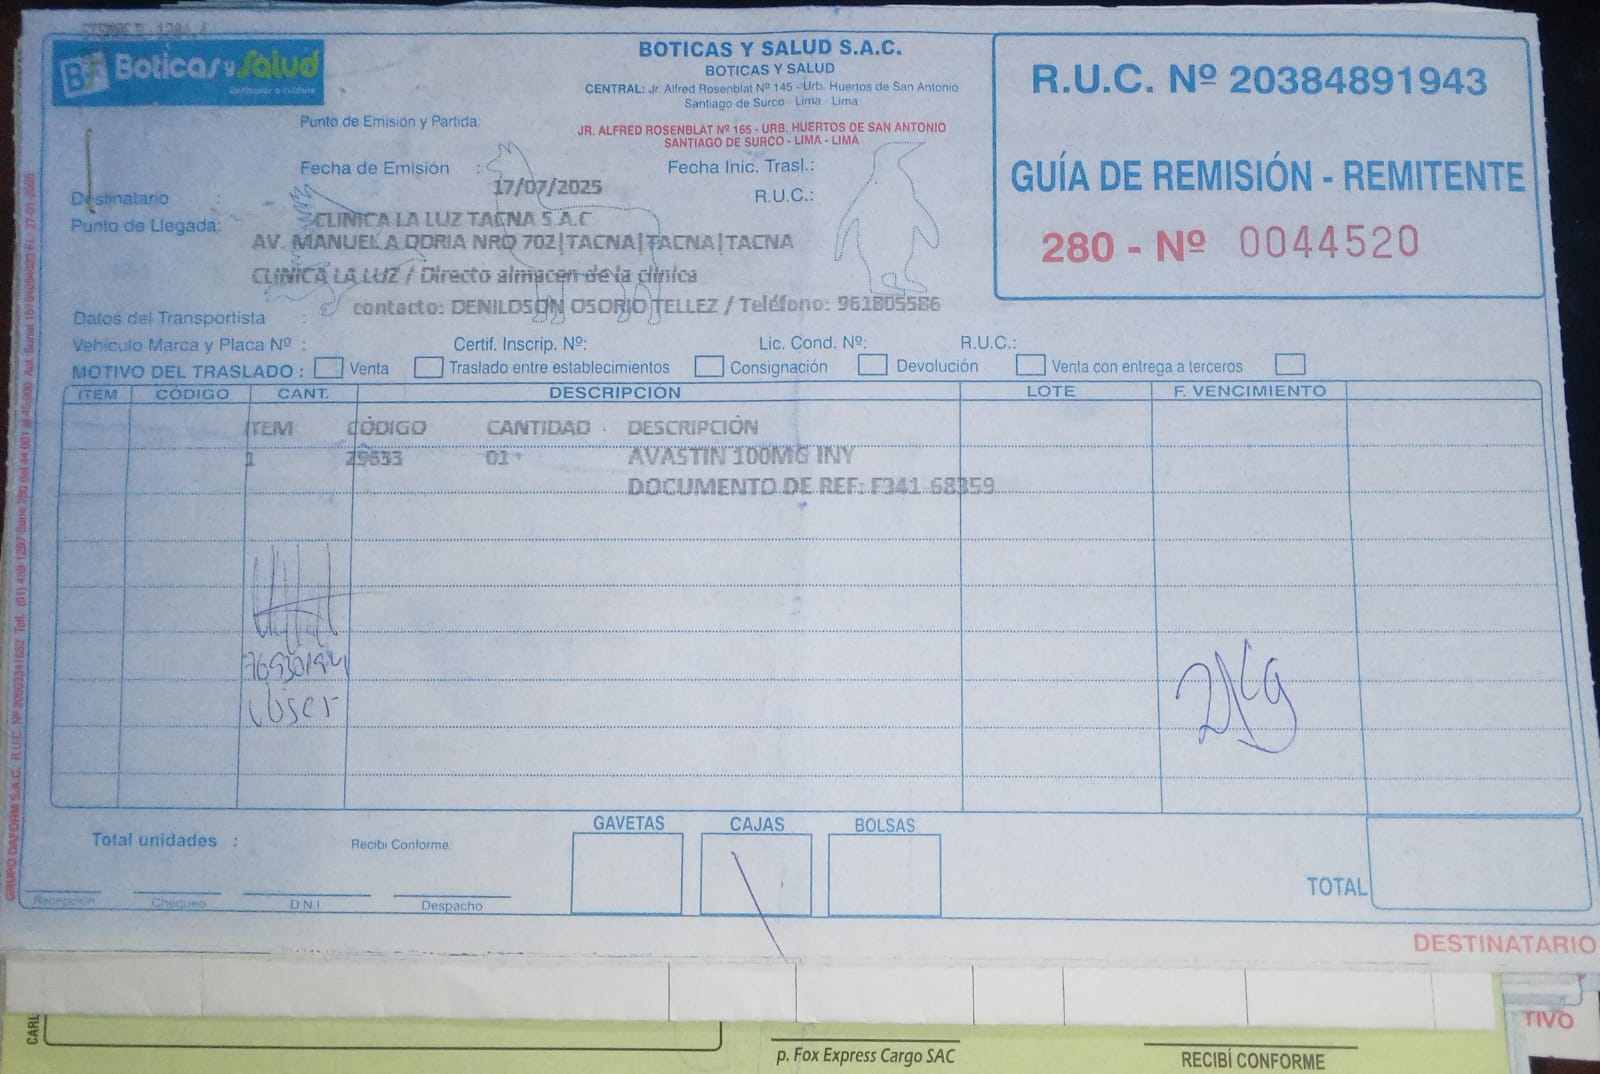 Boticas y Salud
BOTICAS Y SALUD S.A.C.
BOTICAS Y SALUD
CENTRAL: Jr. Alfred Rosenblat Nº 145 - Urb. Huertos de San Antonio
Santiago de Surco - Lima - Lima
Punto de Emisión y Partida:
JR. ALFRED ROSENBLAT Nº 165 - URB. HUERTOS DE SAN ANTONIO
SANTIAGO DE SURCO - LIMA - LIMA
R.U.C. Nº 20384891943
GUÍA DE REMISIÓN - REMITENTE
280 - Nº 0044520
Fecha de Emisión : 17/07/2025
Fecha Inic. Trasl.:
Destinatario : CLINICA LA LUZ TACNA S.A.C
R.U.C.:
Punto de Llegada: AV. MANUEL A ODRIA NRO 702|TACNA|TACNA|TACNA
CLINICA LA LUZ / Directo almacen de la clinica
contacto: DENILDSON OSORIO TELLEZ / Teléfono: 961805586
Datos del Transportista :
Vehículo Marca y Placa Nº :
Certif. Inscrip. Nº:
Lic. Cond. Nº:
R.U.C.:
MOTIVO DEL TRASLADO : Venta Traslado entre establecimientos Consignación Devolución Venta con entrega a terceros
ITEM CÓDIGO CANT. DESCRIPCIÓN LOTE F. VENCIMIENTO
ITEM CÓDIGO CANTIDAD DESCRIPCIÓN
1 29633 01 AVASTIN 100MG INY
DOCUMENTO DE REF: F341 68359
2Kg
Total unidades :
Recibí Conforme:
GAVETAS CAJAS BOLSAS
TOTAL
Recepción Chequeo D.N.I Despacho
DESTINATARIO
TIVO
CARL
p. Fox Express Cargo SAC
RECIBÍ CONFORME